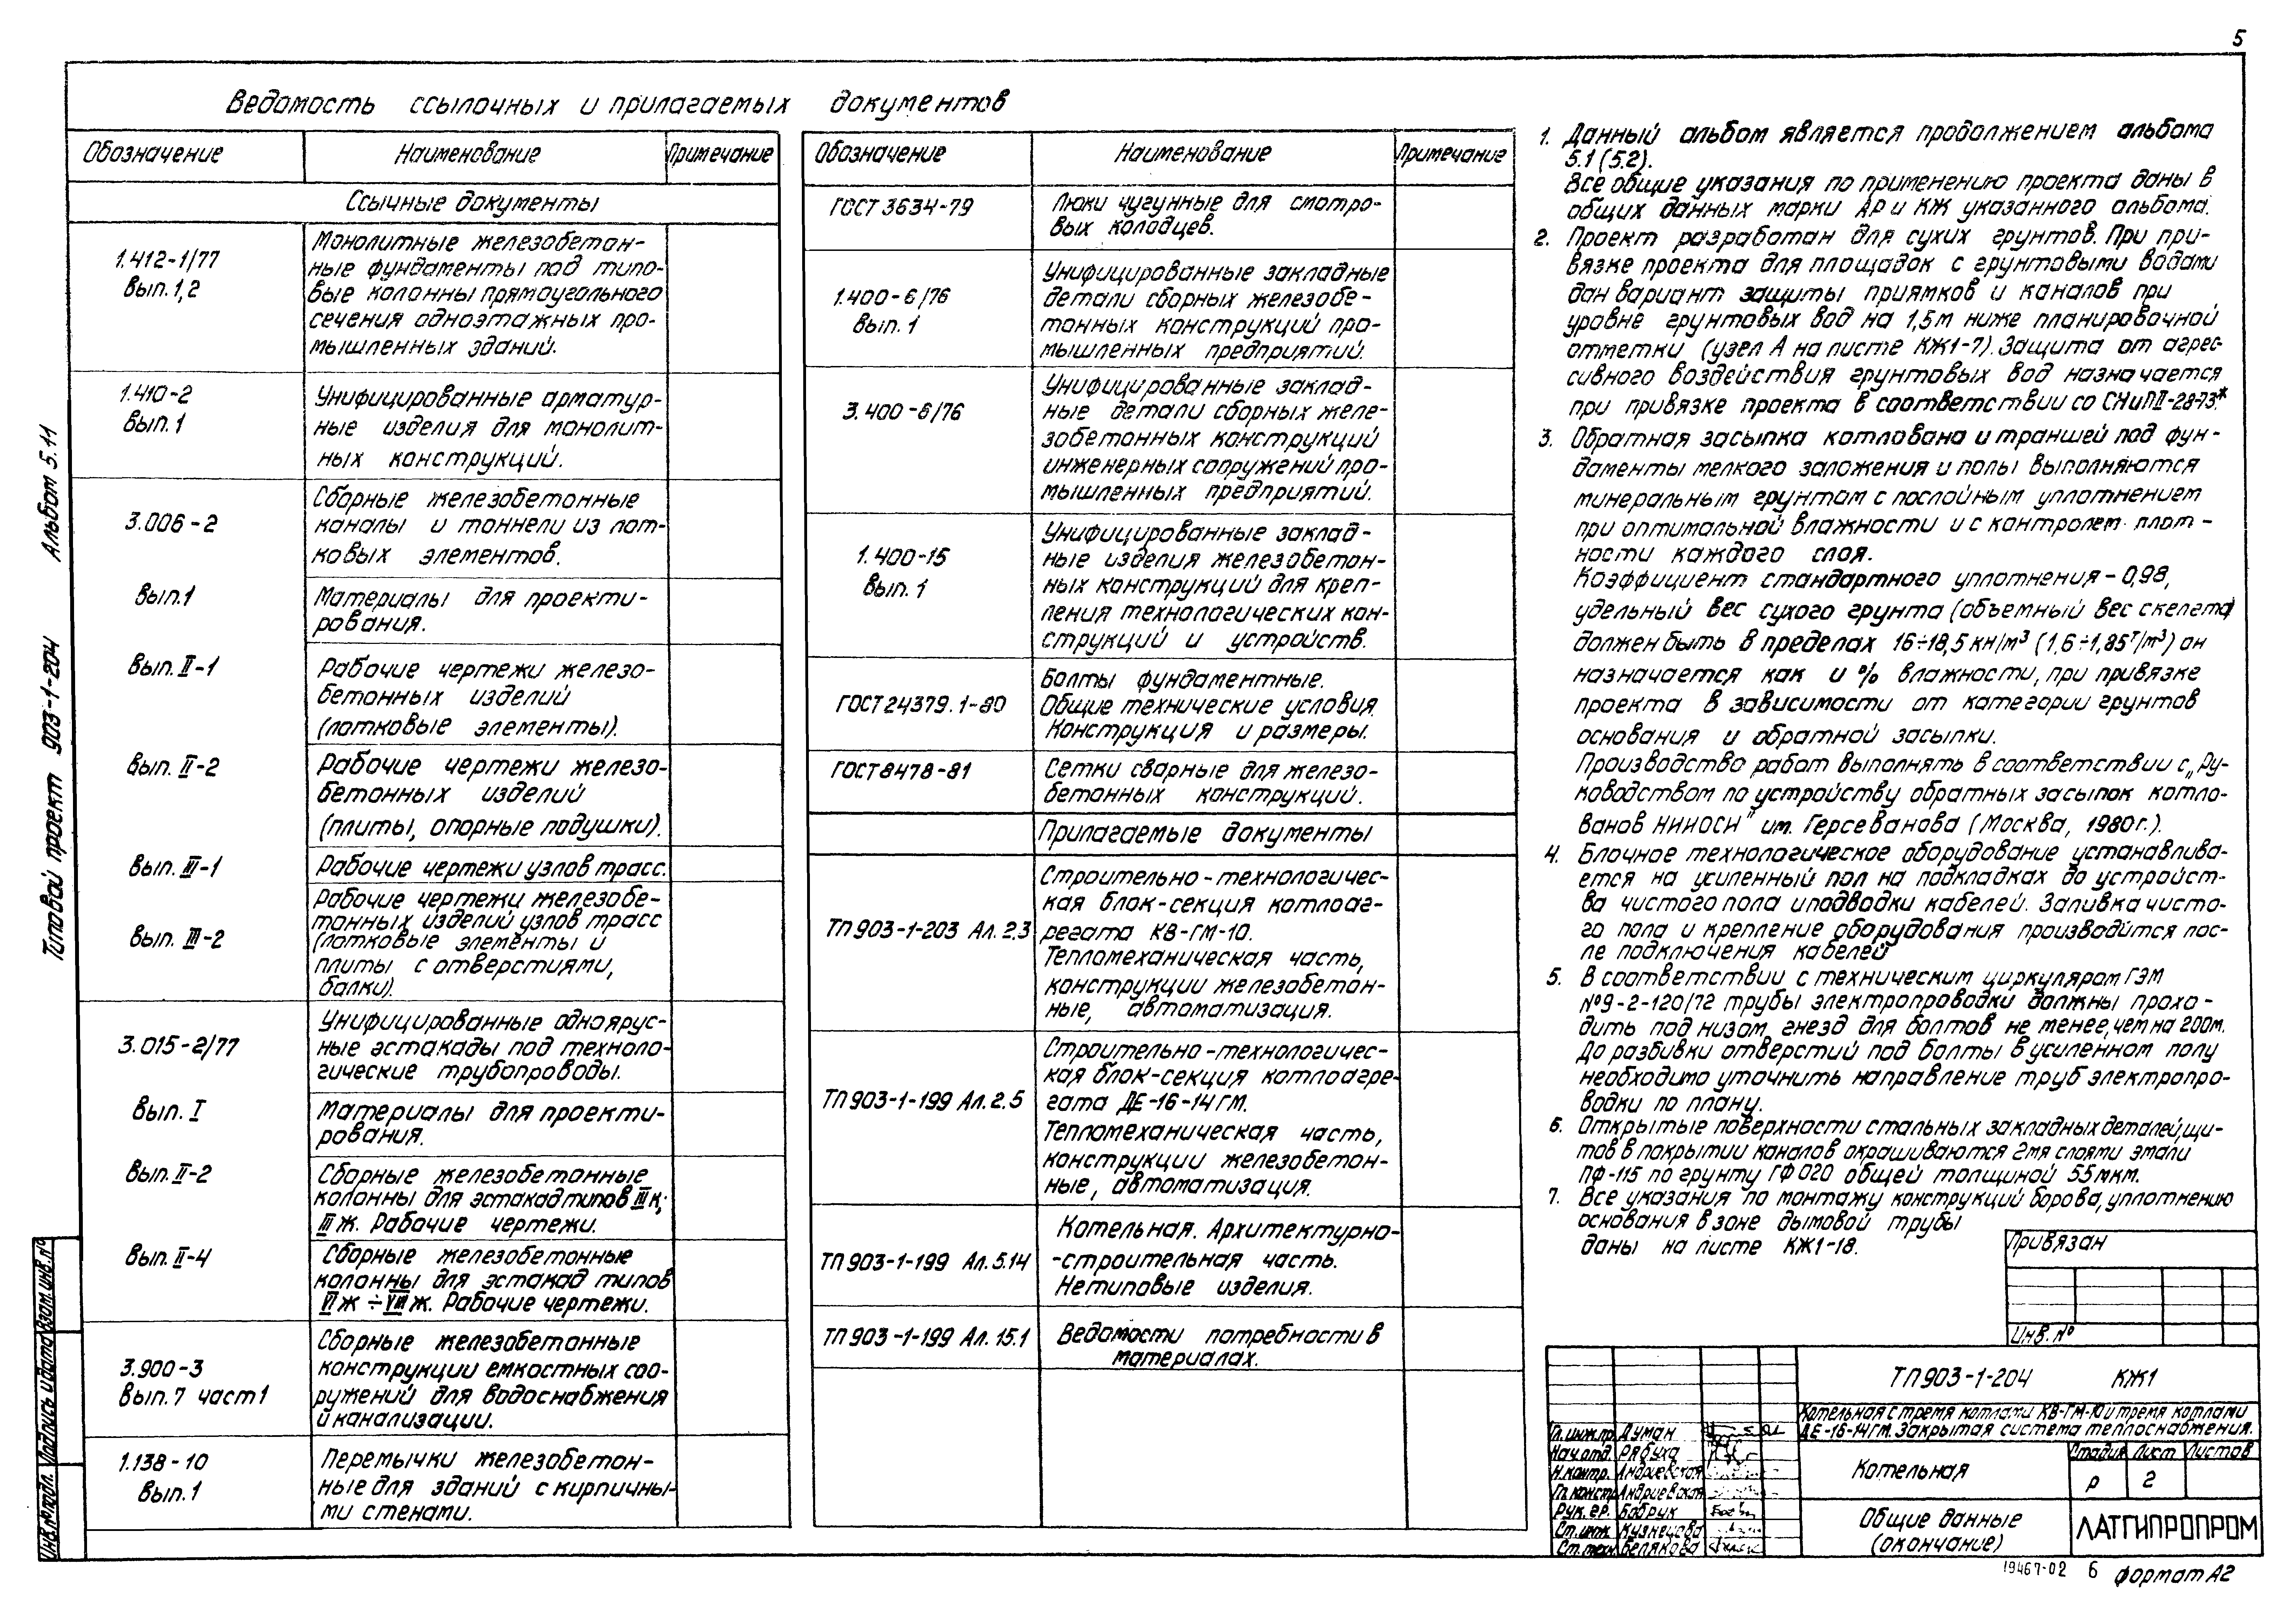 5
Ведомость ссылочных и прилагаемых документов
Обозначение Наименование Примечание
Ссычные документы
1.412-1/77
Вып. 1,2
Монолитные железобетон-
ные фундаменты под типо-
вые колонны прямоугольного
сечения одноэтажных про-
мышленных зданий.
1.410-2
Вып. 1
Унифицированные арматур-
ные изделия для монолит-
ных конструкций.
3.006-2
Сборные железобетонные
каналы и тоннели из лот-
ковых элементов.
Вып.1
Материалы для проекти-
рования.
Вып. II-1
Рабочие чертежи железо-
бетонных изделий
(лотковые элементы).
Вып. II-2
Рабочие чертежи железо-
бетонных изделий
(плиты, опорные подушки).
Вып. III-1
Рабочие чертежи узлов трасс.
Вып. III-2
Рабочие чертежи железобе-
тонных изделий узлов трасс
(лотковые элементы и
плиты с отверстиями,
балки).
3.015-2/77
Унифицированные однояру​с-
ные эстакады под техноло-
гические трубопроводы.
Вып. I
Материалы для проекти-
рования.
Вып. II-2
Сборные железобетонные
колонны для эстакад типов III к;
III ж. Рабочие чертежи.
Вып. II-4
Сборные железобетонные
колонны для эстакад типов
VI ж ÷ VIII ж. Рабочие чертежи.
3.900-3
Вып. 7 часть 1
Сборные железобетонные
конструкции емкостных соо-
ружений для водоснабжения
и канализации.
1.138-10
Вып. 1
Перемычки железобетон-
ные для зданий с кирпичны-
ми стенами.
Обозначение Наименование Примечание
ГОСТ 3634-79
Люки чугунные для смотро-
вых колодцев.
1.400-6/76
Вып. 1
Унифицированные закладные
детали сборных железобе-
тонных конструкций про-
мышленных предприятий.
3.400-6/76
Унифицированные заклад-
ные детали сборных желе-
зобетонных конструкций
инженерных сооружений про-
мышленных предприятий.
1.400-15
Вып. 1
Унифицированные заклад-
ные изделия железобетон-
ных конструкций для креп-
ления технологических кон-
струкций и устройств.
ГОСТ 24379.1-80
Болты фундаментные.
Общие технические условия.
Конструкция и размеры.
ГОСТ 8478-81
Сетки сварные для железо-
бетонных конструкций.
Прилагаемые документы
ТП 903-1-203 Ал. 2.3
Строительно-технологичес-
кая блок-секция котлоаг-
регата КВ-ГМ-10.
Тепломеханическая часть,
конструкции железобетон-
ные, автоматизация.
ТП 903-1-199 Ал. 2.5
Строительно-технологичес-
кая блок-секция котлоагре-
гата ДЕ-16-14ГМ.
Тепломеханическая часть,
конструкции железобетон-
ные, автоматизация.
ТП 903-1-199 Ал. 5.14
Котельная. Архитектурно-
-строительная часть.
Нетиповые изделия.
ТП 903-1-199 Ал. 15.1
Ведомости потребности в
материалах.
1. Данный альбом является продолжением альбома
5.1 (5.2).
Все общие указания по применению проекта даны в
общих данных марки АР и КЖ указанного альбома.
2. Проект разработан для сухих грунтов. При при-
вязке проекта для площадок с грунтовыми водами
дан вариант защиты приямков и каналов при
уровне грунтовых вод на 1,5м ниже планировочной
отметки (узел А на листе КЖ1-7). Защита от агрес-
сивного воздействия грунтовых вод назначается
при привязке проекта в соответствии со СНиП II-28-73*.
3. Обратная засыпка котлована и траншей под фун-
даменты мелкого заложения и полы выполняются
минеральным грунтом с послойным уплотнением
при оптимальной влажности и с контролем плот-
ности каждого слоя.
Коэффициент стандартного уплотнения - 0,98,
удельный вес сухого грунта (объемный вес скелета)
должен быть в пределах 16÷18,5 кн/м³ (1,6÷1,85 т/м³) он
назначается как и % влажности, при привязке
проекта в зависимости от категории грунтов
основания и обратной засыпки.
Производство работ выполнять в соответствии с „Ру-
ководством по устройству обратных засыпок котло-
ванов НИИОСП" им. Герсеванова (Москва, 1980г.).
4. Блочное технологическое оборудование устанавлива-
ется на усиленный пол на подкладках до устройст-
ва чистого пола и подводки кабелей. Заливка чисто-
го пола и крепление оборудования производится пос-
ле подключения кабелей
5. В соответствии с техническим циркуляром ГЭМ
№9-2-120/72 трубы электропроводки должны прохо-
дить под низом гнезд для болтов не менее, чем на 200м.
До разбивки отверстий под болты в усиленном полу
необходимо уточнить направление труб электропро-
водки по плану.
6. Открытые поверхности стальных закладных деталей, щи-
тов в покрытии каналов окрашиваются 2мя слоями эмали
ПФ-115 по грунту ГФ 020 общей толщиной 55 мкм.
7. Все указания по монтажу конструкций борова, уплотнению
основания в зоне дымовой трубы
даны на листе КЖ1-18.
Привязан
Инв. №
ТП 903-1-204 КЖ1
Котельная с тремя котлами КВ-ГМ-10 и тремя котлами
ДЕ-16-14ГМ. Закрытая система теплоснабжения.
Гл. инж. пр. Думан
Нач. отд. Рябуха
Н. контр. Андриевская
Гл. констр. Андриевская
Рук. гр. Бобрук
Ст. инж. Кузнецова
Ст. тех. Белякова
Котельная
Стадия Лист Листов
р 2
Общие данные
(окончание)
ЛАТГИПРОПРОМ
19467-02 6 формат А2
Типовой проект 903-1-204 Альбом 5.11
Инв. № подл. Подпись и дата Взам. инв. №